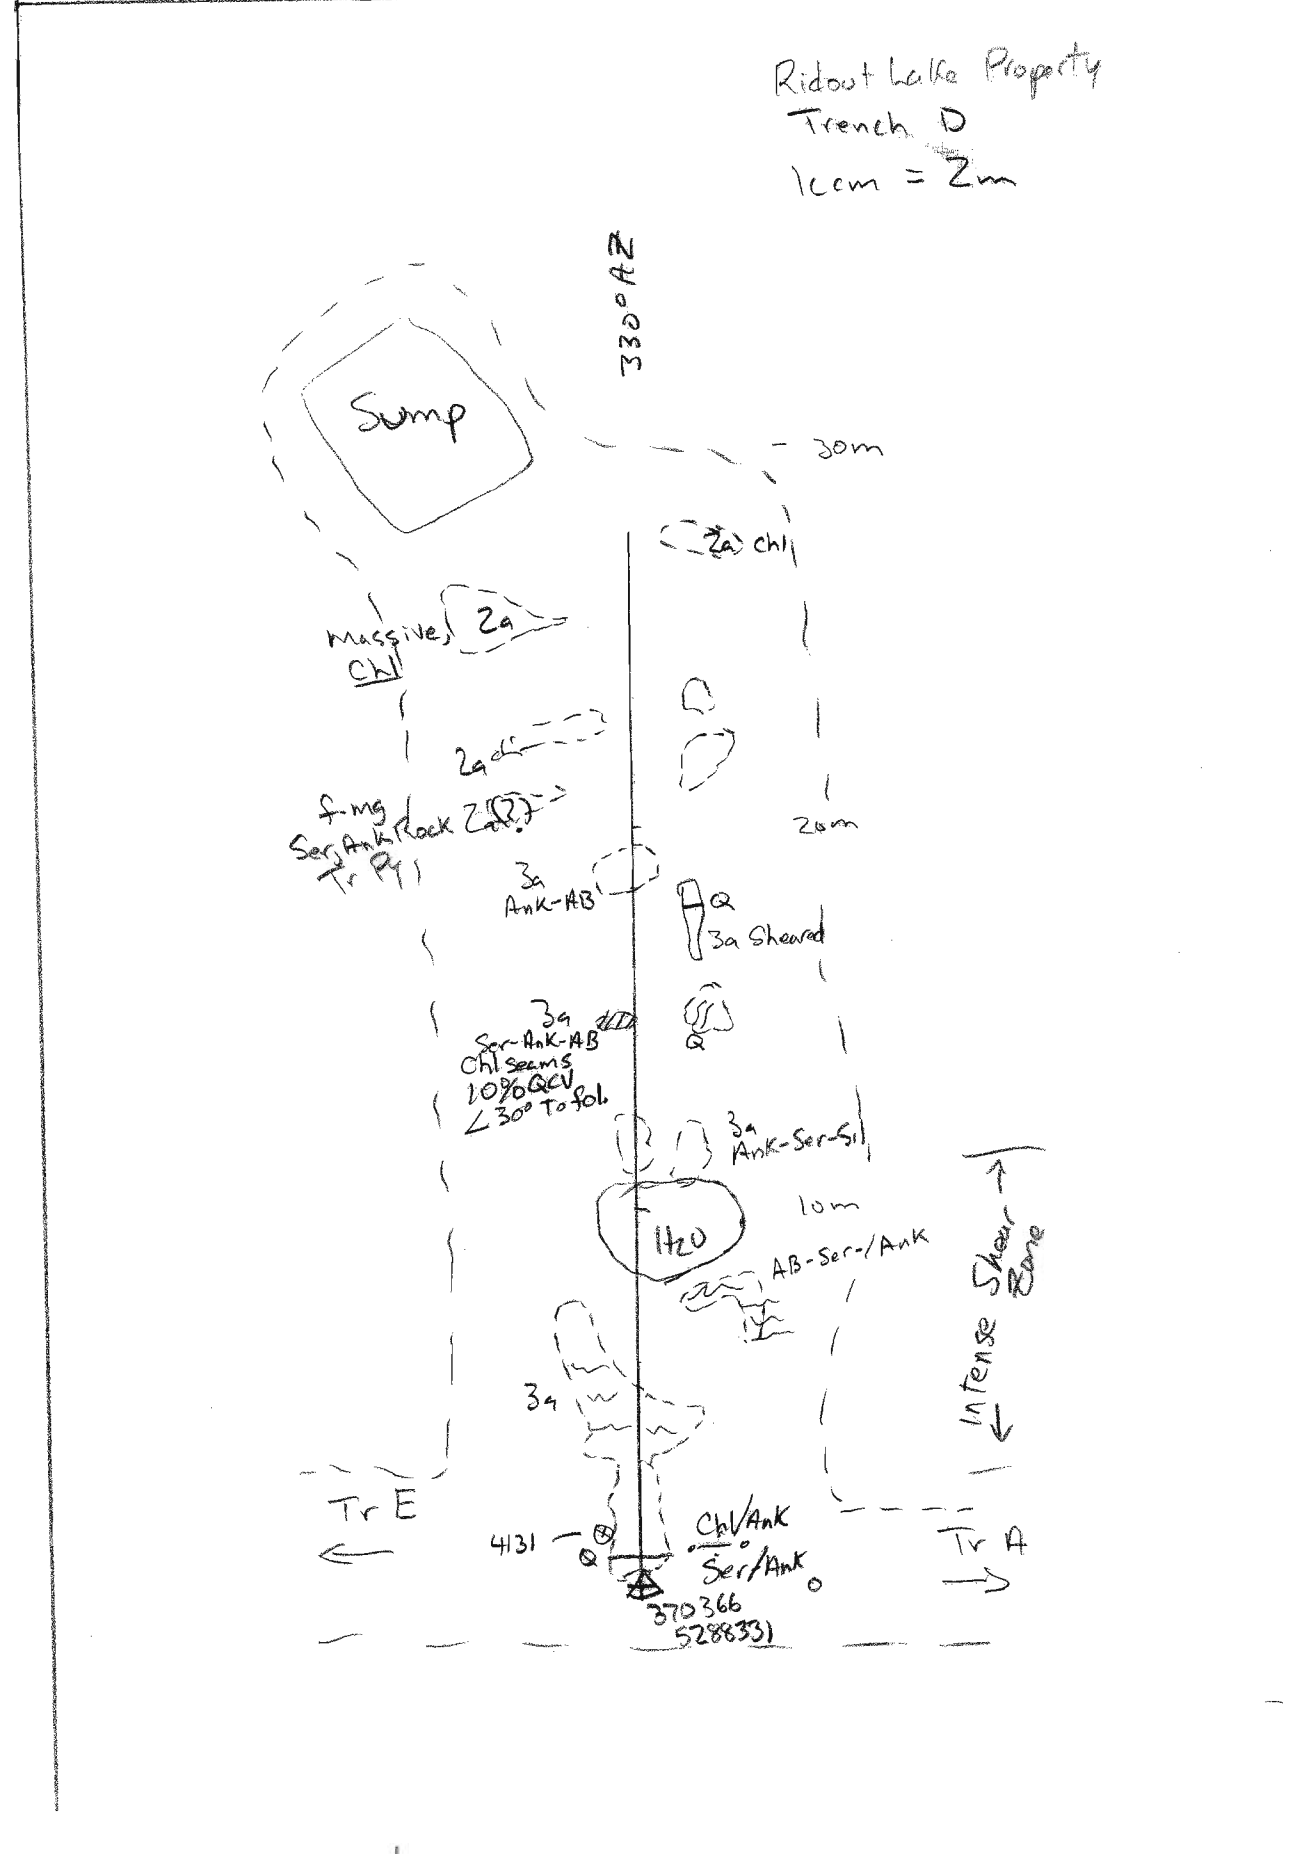 Ridout Lake Property
Trench D
1ccm = 2m
330° AZ
Sump
30m
2a) Chl
Massive, 2a
Chl
2a
f-mg
Ser, Ank Rock 2a(?)
Tr Py
20m
3a
Ank-AB
Q
3a Sheared
3a
Ser-Ank-AB
Chl seams
10% QCV
∠30° To fol.
Q
3a
Ank-Ser-Sil
10m
H2O
AB-Ser-/Ank
Intense Shear
Zone
3a
Tr E
4131
Q
Chl/Ank
Ser/Ank
Tr A
370366
5288331